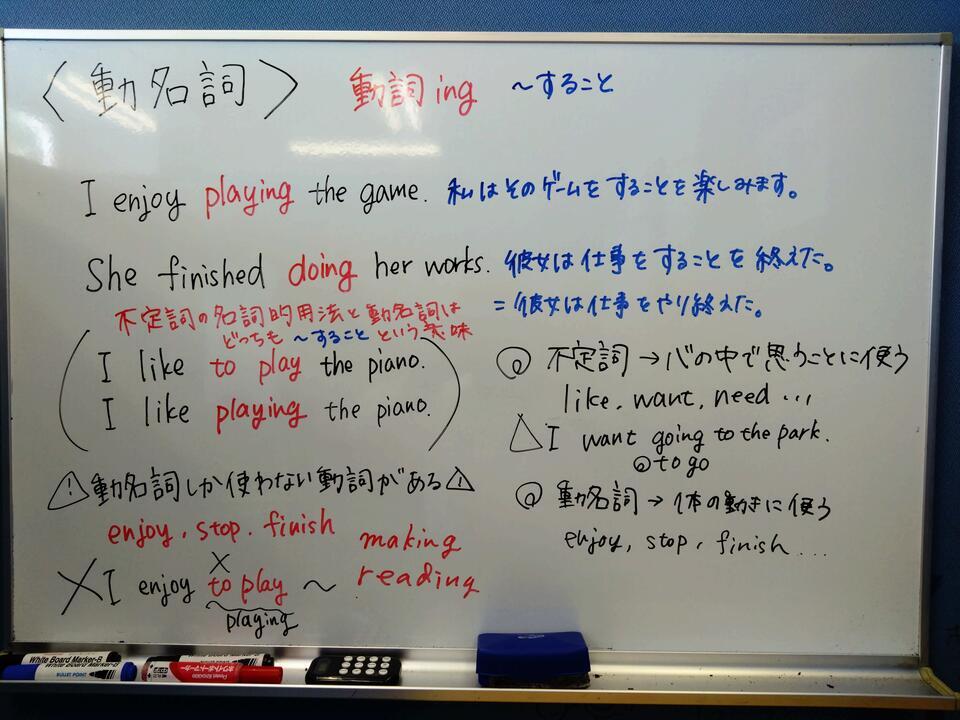 〈動名詞〉 動詞ing ～すること
I enjoy playing the game. 私はそのゲームをすることを楽しみます。
She finished doing her works. 彼女は仕事をすることを終えた。
=彼女は仕事をやり終えた。
不定詞の名詞的用法と動名詞は
どっちも ～すること という意味
I like to play the piano.
I like playing the piano.
⚠動名詞しか使わない動詞がある⚠
enjoy, stop, finish
making
reading
×I enjoy to play ～
×
playing
◎ 不定詞→心の中で思うことに使う
like, want, need ...
△I want going to the park.
◎to go
◎ 動名詞→体の動きに使う
enjoy, stop, finish ...
White Board Marker-B
BULLET POINT
ホワイトボードマーカー